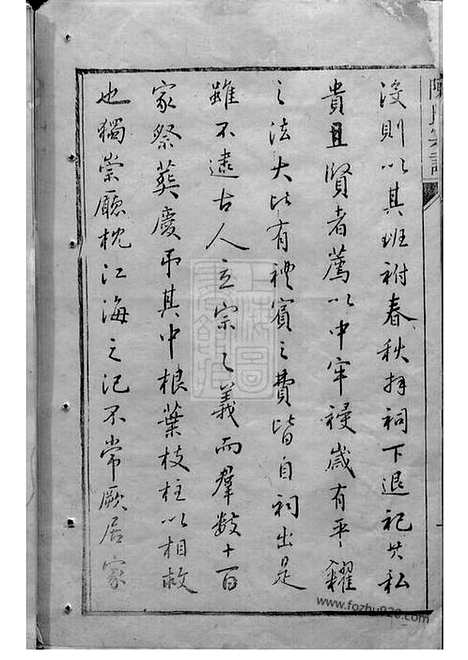 陳氏宗譜
沒則以其班祔春秋拜祠下退祀其私
貴且賢者薦以中牢祲歲有平糶
之法大比有禮賓之費皆自祠出是
雖不逮古人立宗之義而羣數十百
家祭葬慶弔其中根葉枝柱以相救
也獨崇廳枕江海之汜不常厥居家
www.fozhu920.com